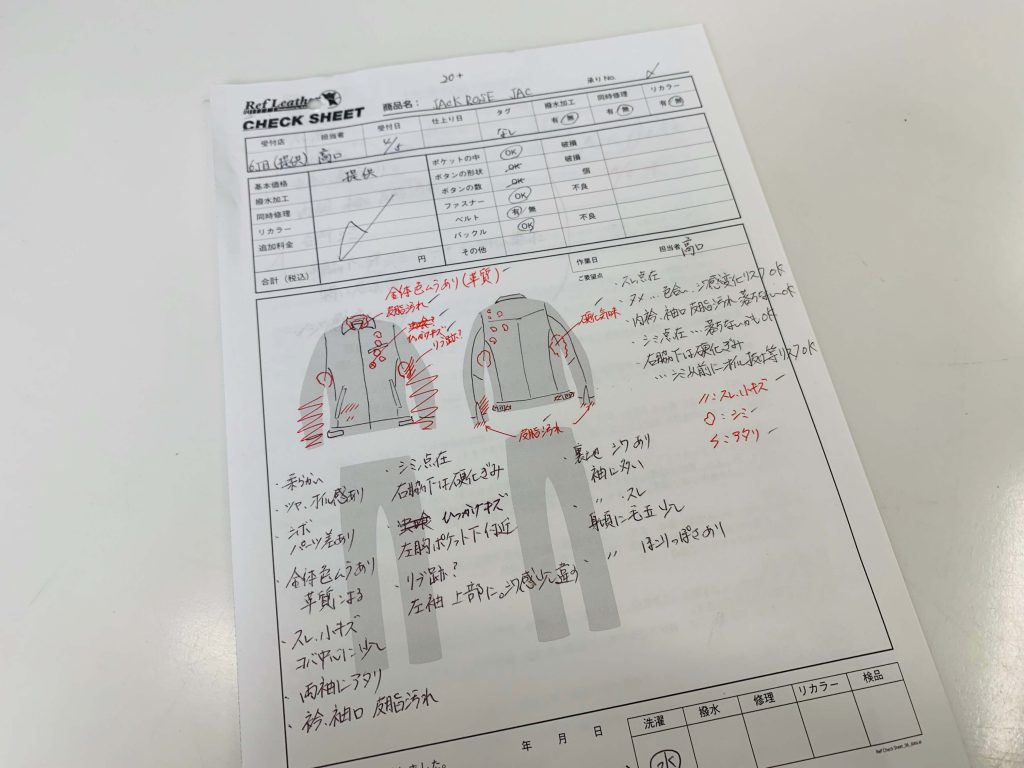 20+
Ref Leather
CHECK SHEET
商品名： JACK ROSE JAC
承りNo.
受付店 担当者 受付日 仕上り日 タグ 撥水加工 同時修理 リカラー
6丁目(提供) 高口 4/5 なし 有 無 有 無 有 無
基本価格 提供
撥水加工
同時修理
リカラー
追加料金
円
合計（税込）
ポケットの中 OK 破損
ボタンの形状 OK 破損
ボタンの数 OK 個
ファスナー OK 不良
ベルト 有/無
バックル OK 不良
その他
作業日
担当者 高口
ご要望点
・スレ点在
・ヌメ…色合い、シワ感変化リスクOK
・内衿、袖口皮脂汚れ 落ちないOK
・シミ点在…落ちないかもOK
・右脇下は硬化ぎみ
全体色ムラあり(革質)
皮脂汚れ
ひっかけキズ
リブ跡？
硬化気味
皮脂汚れ
//：スレ、小キズ
○：シミ
：アタリ
・柔らかい
・ツヤ、オイル感あり
・シボ
パーツ差あり
・全体色ムラあり
革質による
・スレ、小キズ
コバ中心に少し
・両袖にアタリ
・衿、袖口 皮脂汚れ
・シミ点在
右脇下は硬化ぎみ
ひっかけキズ
左胸ポケット下付近
・リブ跡？
左袖上部に。シワ感少し違う
・裏地 シワあり
袖に多い
・〃 スレ
身頃に毛玉少し
・〃 ほこりっぽさあり
年 月 日
洗濯 撥水 修理 リカラー 検品
OK
ました。